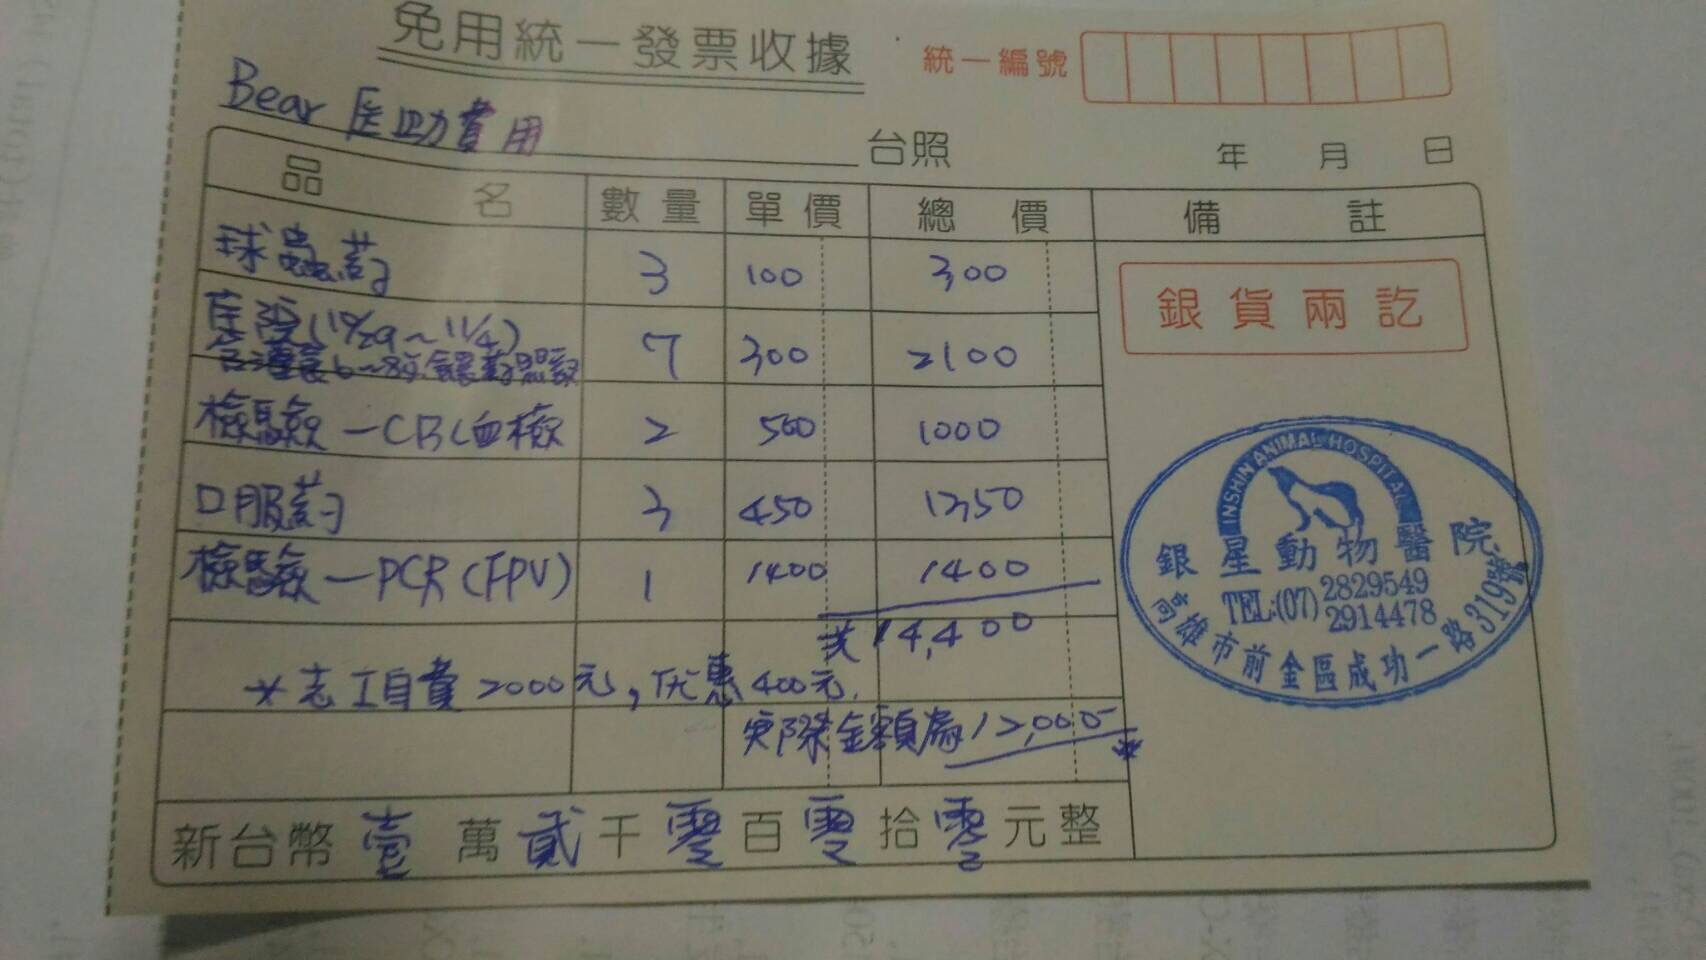 免用統一發票收據
統一編號
Bear 医助費用 台照 年 月 日
品 名 數量 單價 總 價 備 註
球蟲葯 3 100 300
住院(10/29~11/4) 7 300 2100
銀貨兩訖
檢驗—CBC血檢 2 500 1000
口服葯 3 450 1350
檢驗—PCR(FPV) 1 1400 1400
共 14,400
*志工自費2000元,优惠400元.
实際金額為12,000
新台幣壹萬貳千零百零拾零元整
INSHIN ANIMAL HOSPITAL
銀星動物醫院
TEL:(07) 2829549
2914478
高雄市前金區成功一路319號